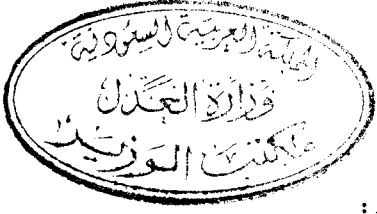 المملكة العربية السعودية
وزارة العدل
مكتب الوزير
: